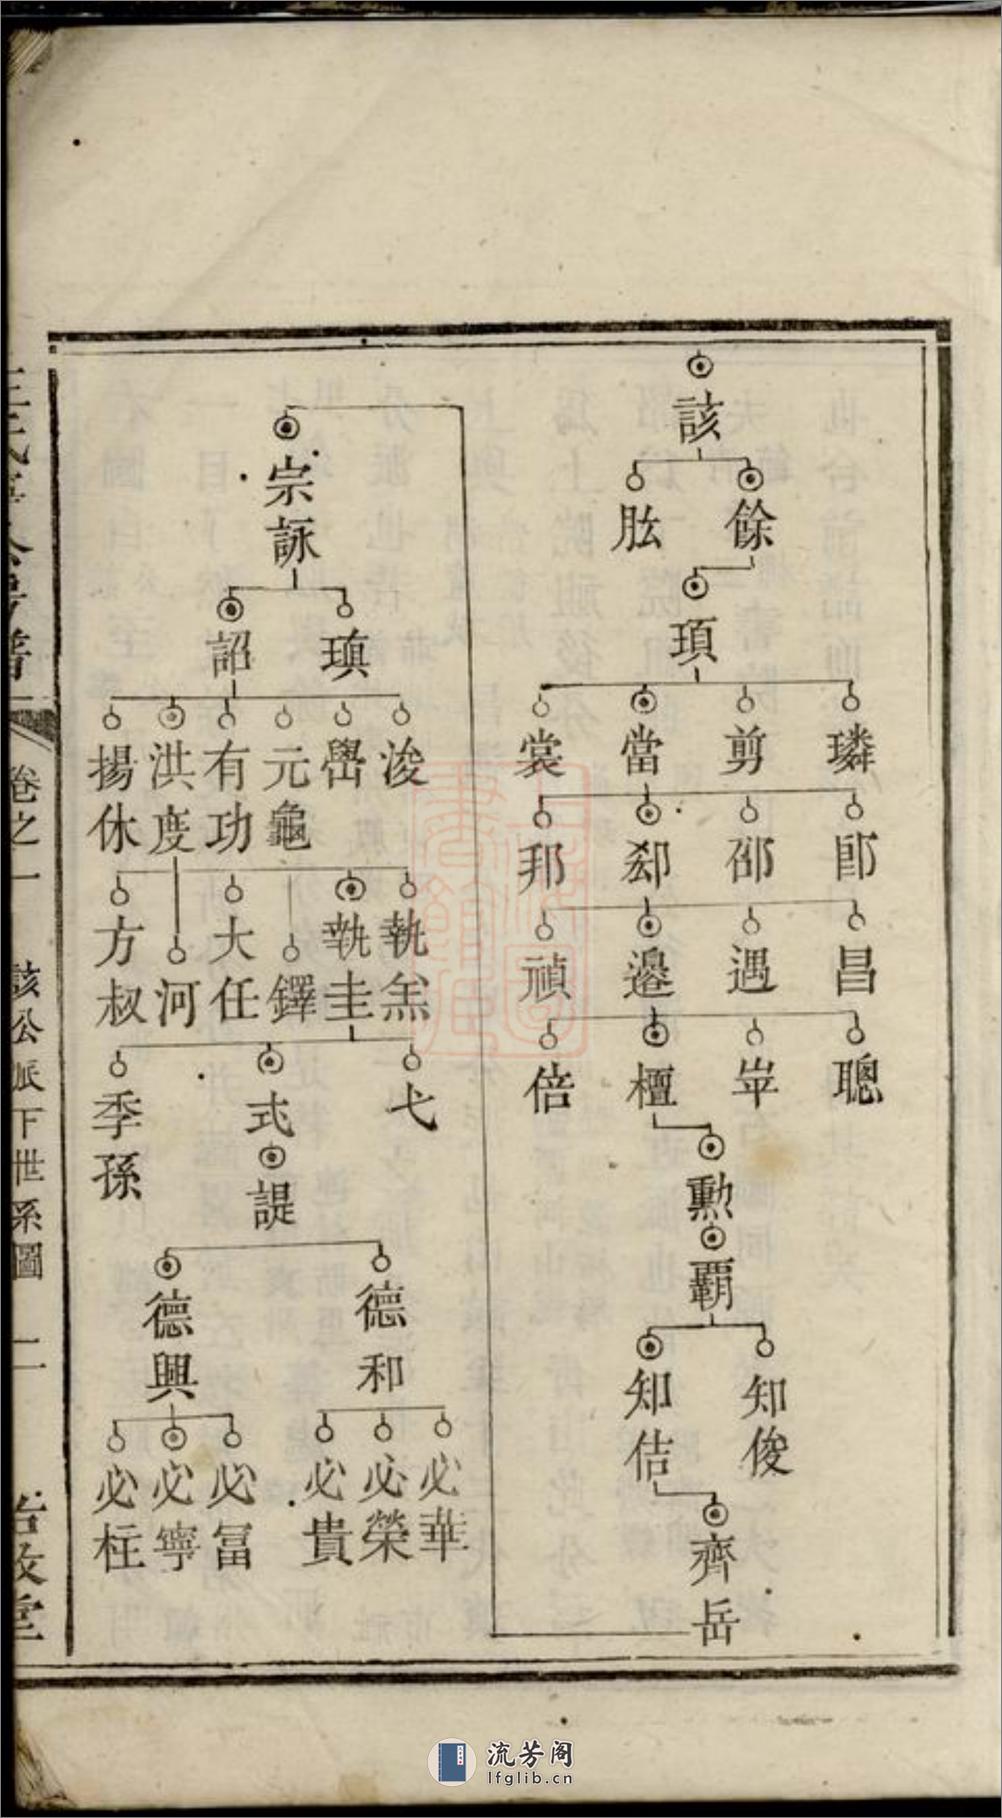 該
餘
肱
頊
璘
剪
當
裳
郎
邵
郄
邦
昌
遇
邉
禎
聰
岸
檀
倍
勲
覇
知俊
知佶
齊岳
宗詠
瑱
詔
浚
嚳
元龜
有功
洪度
揚休
執羔
執圭
鐸
大任
河
方叔
弋
式
季孫
諟
德和
德興
必華
必榮
必貴
必冨
必寧
必柱
卷之一
該公派下世系圖
二
流芳阁
lfglib.cn